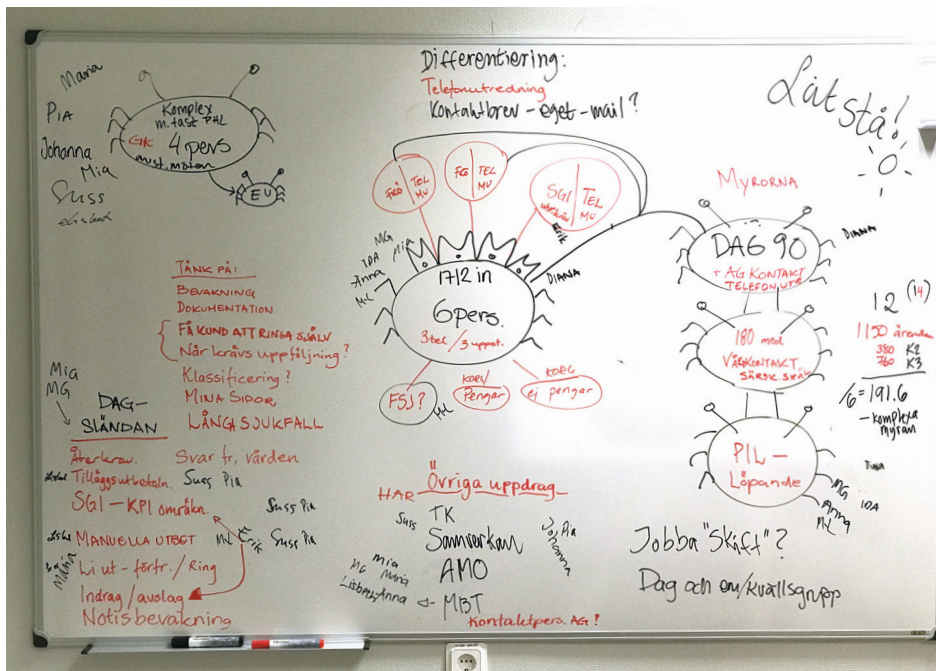 Maria
Pia
Johanna
Mia
Suss
Komplex
m. fast PHL
GK 4 pers
avst. möten
EU
Differentiering:
Telefonutredning
Kontaktbrev - eget - mail?
Låt stå!
FRÖ TEL MU
FG TEL MU
SGI TEL MU
Erik
MG
IDA Mia
Anna
ML
DIANA
17/2 in
6 pers.
3 tel / 3 uppst.
FSJ?
ML
KORV/
Pengar
KORG
ej pengar
MYRORNA
DAG 90
+ AG KONTAKT
TELEFON.UTR
DIANA
180 med
VÅRDKONTAKT
SÄRSK. SKÄL
PIL -
Löpande
MG IDA
Anna
ML
12 (14)
1150 ärenden
380 K2
760 K3
/6 = 191.6
- komplexa
myran
TÄNK PÅ:
BEVAKNING
DOKUMENTATION
FÅ KUND ATT RINGA SJÄLV
När krävs uppföljning?
Klassificering?
MINA SIDOR
LÅNGA SJUKFALL
Svar fr. vården
Mia
MG
DAG-
SLÄNDAN
Återkrav.
Tilläggsutbetaln. Suss Pia
SGI - KPI områkn. Suss Pia
MANUELLA UTBET ML Erik Suss Pia
Maria
Li ut - förfr. / Ring
Indrag / avslag
Notisbevakning
HAR Övriga uppdrag
Suss TK
Samverkan Johanna Pia
MG Mia Maria AMO
Lisbeth Anna MBT
Kontaktpers. AG?
Jobba "Skift"?
Dag och em/kvällsgrupp